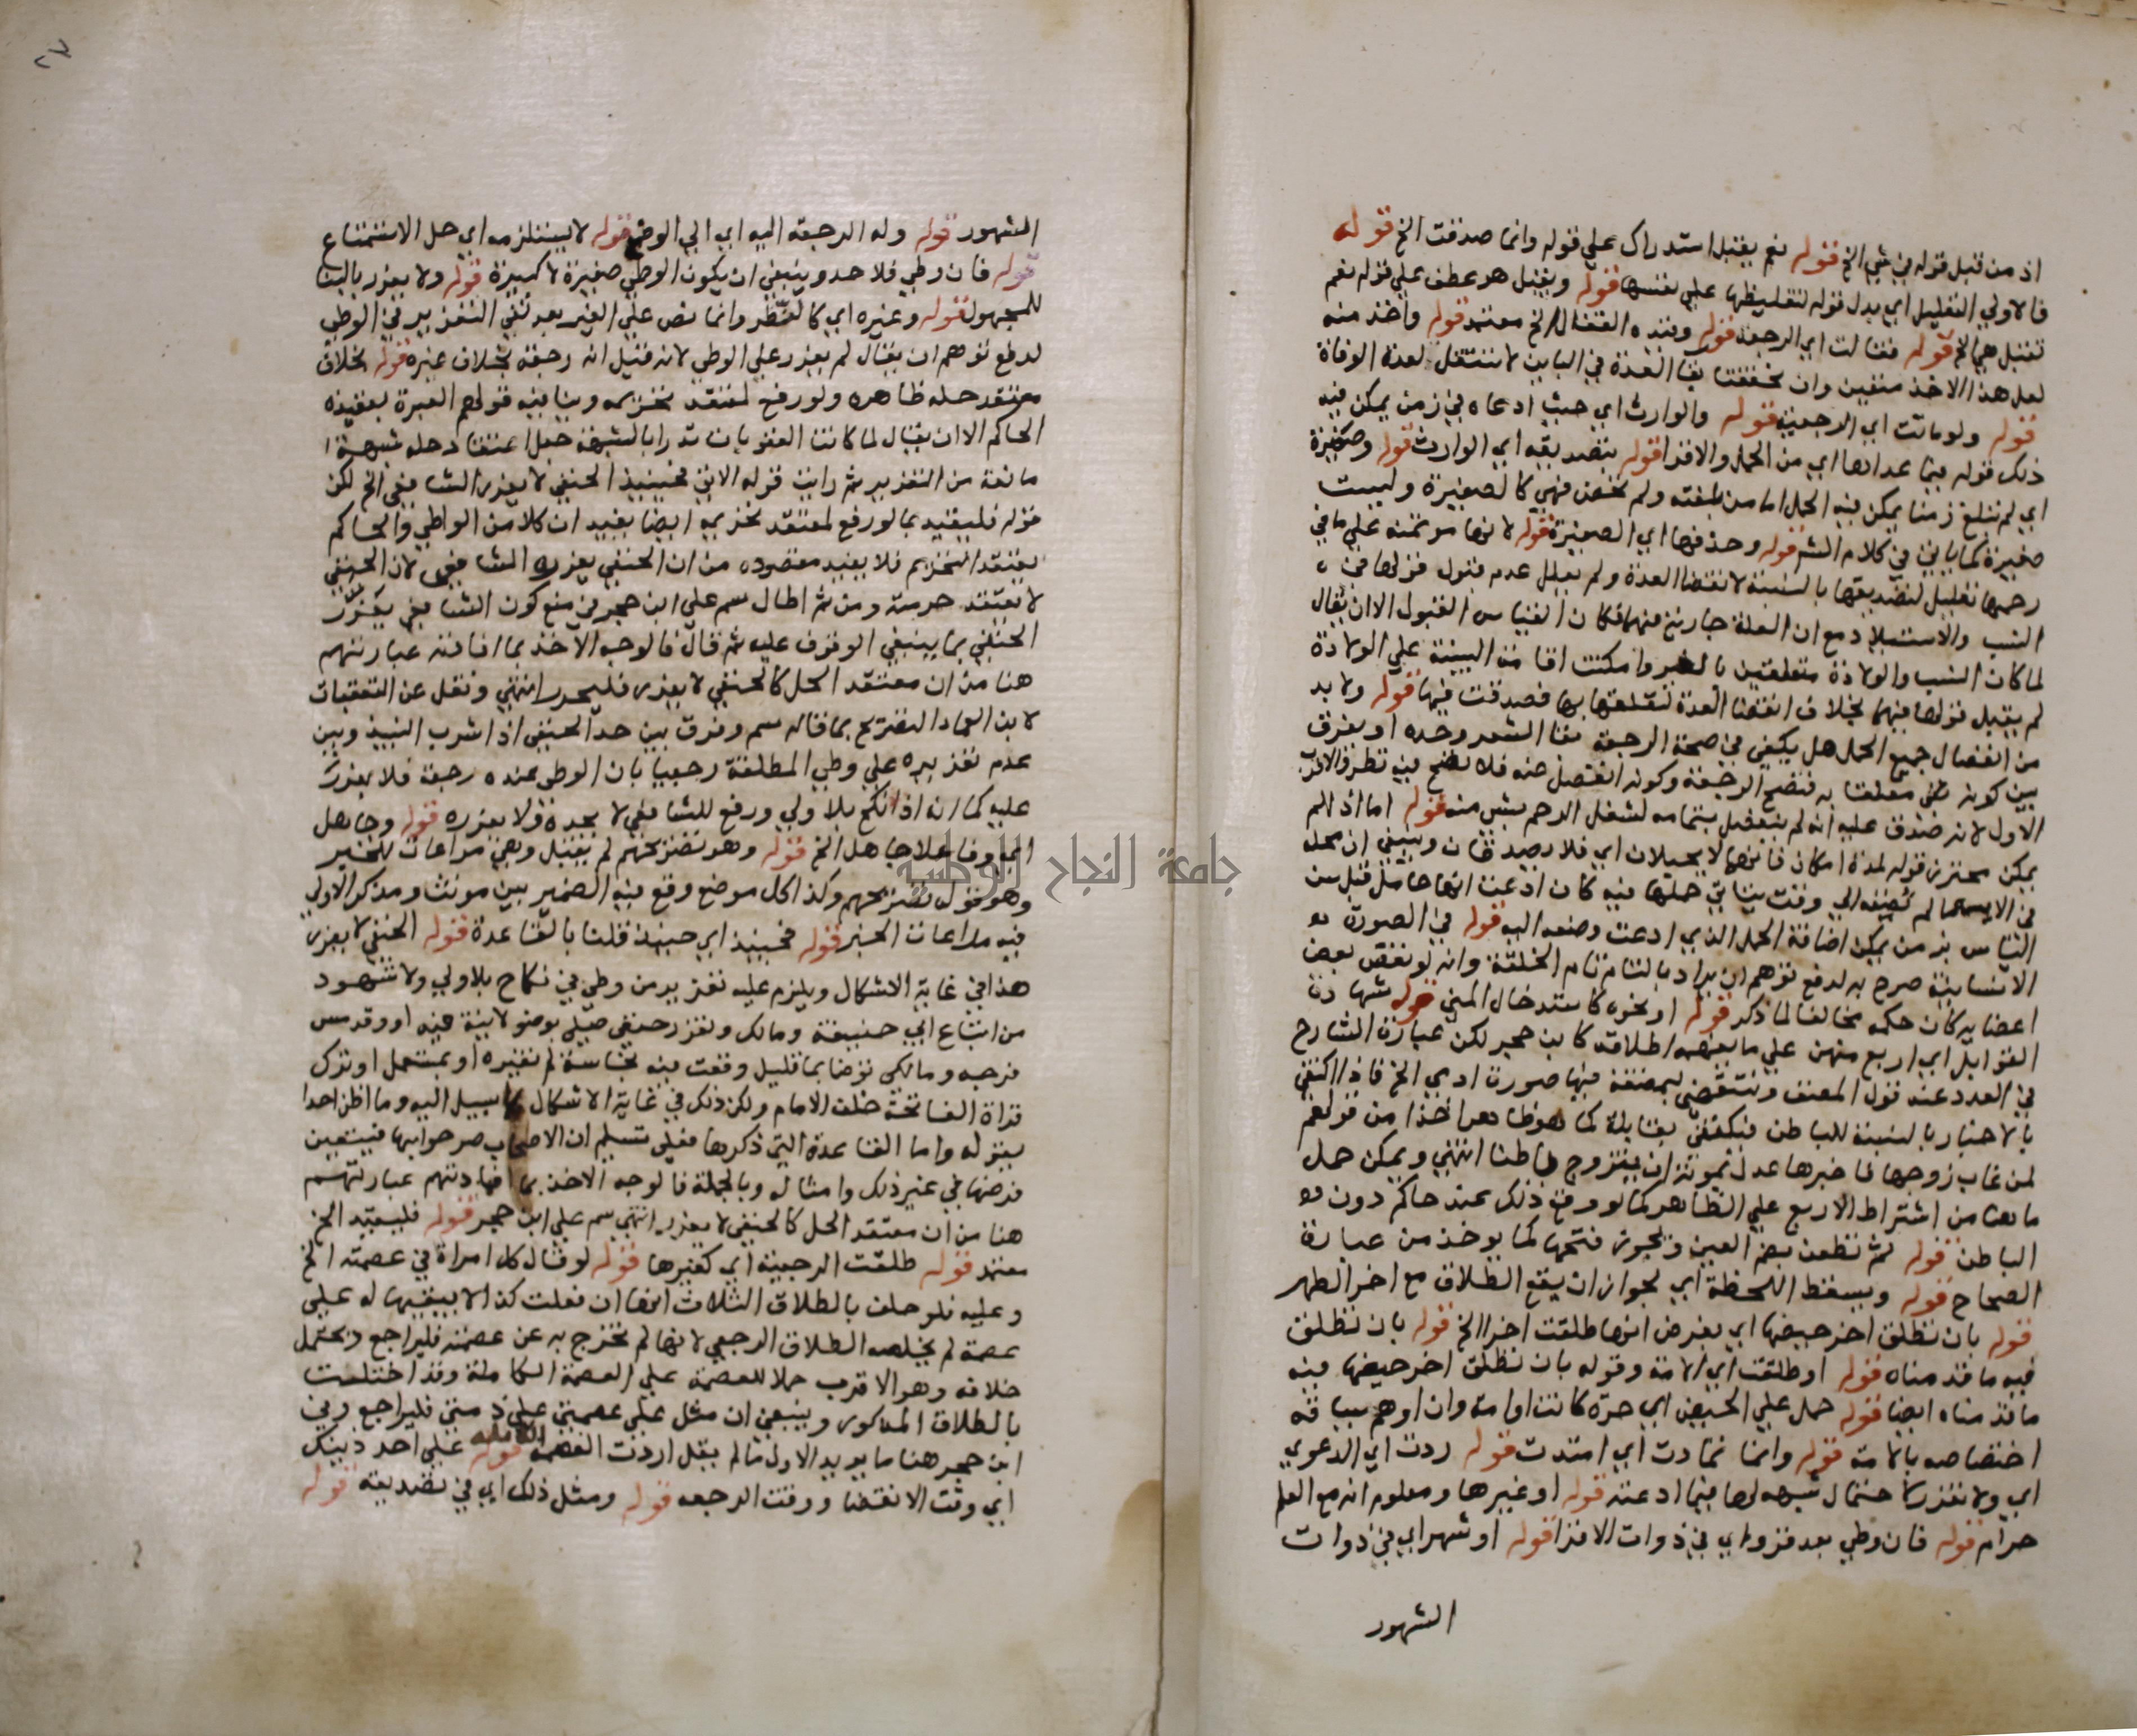 اذ من قبل قوله في شي الخ قوله نعم يقبل استدراك علي قوله وانما صدقت الخ قوله
فالاولي التعليل اي بدل قوله لتغليظها علي نفسها قوله ويقبل هو عطف علي قوله نعم
تقبل هي الخ قوله فقالت اي الرجعة قوله وقيده القفال الخ معتمد قوله واخذ منه
لعل هذا الاخذ متعين وان تحققنا بقا العدة في البابين لا تنتقل لعدة الوفاة
قوله ولو ماتت اي الرجعية قوله والوارث اي حيث ادعاه في زمن يمكن فيه
ذلك قوله فيما عداها اي من الحمل والاقرا قوله بتصديقه اي الوارث قوله وصغيرة
اي لم تبلغ زمنا يمكن فيه الحبل اما من بلغته ولم تحض فهي كالصغيرة وليست
صغيرة كما ياتي في كلام الشر قوله وحذفها اي الصغيرة قوله لانها موتمنة علي ما في
رحمها تعليل لتصديقها بالنسبة لانقضا العدة ولم يعلل عدم قبول قولها في
النسب والاستيلاد مع ان العلة جارية فيهما فكان القياس القبول الا ان يقال
لما كان النسب والولادة متعلقين بالغير وامكنت اقامة البينة علي الولادة
لم يقبل قولها فيهما بخلاف انقضا العدة لتعلقها بها فصدقت فيها قوله ولا بد
من انفصال جميع الحمل هل يكفي في صحة الرجعة بقا الشعر وحده او يفرق
بين كونه بقي متعلقا به فتصح الرجعة وكونه انفصل عنه فلا تصح فيه نظر والاقرب
الاول لانه صدق عليه انه لم ينفصل بتمامه لشغل الرحم بشي منه قوله اما اذا لم
يمكن محترز قوله لمدة امكان فانها لا يحيلان اي فلا رصيد فان وينبغي ان محله
في الايسة ما لم تضفه الي وقت يتاتي حملها فيه كان ادعت انها حامل قبل سن
الياس بزمن يمكن اضافة الحمل الذي ادعت وضعه اليه قوله في الصورة
الانسانية صرح به لدفع توهم ان يراد بالتام تام الخلقة وانه لو نقص بعض
اعضايه كان حكمه مخالفا لما ذكر قوله او نحوه كاستدخال المني قوله شهادة
القوابل اي اربع منهن علي ما يفهمه اطلاقه كابن حجر لكن عبارة الشارح
في العدد عند قول المصنف وتنقضي بمضغة فيها صورة ادمي الخ فاذا اكتفي
بالاخبار بالنسبة للباطن فيكفي بقابلة كما هو ظاهر اخذا من قولهم
لمن غاب زوجها فاخبرها عدل بموته ان يتزوج باطنا انتهي ويمكن حمل
ما هنا من اشتراط الاربع علي الظاهر كما لو وقع ذلك عند حاكم دون
الباطن قوله ثم تطعن بضم العين ويجوز فتحها كما يوخذ من عبارة
الصحاح قوله ويسقط اللحظة اي لجواز ان يقع الطلاق مع اخر الطهر
قوله بان تطلق اخر حيضها اي بفرض انها طلقت اخر الخ قوله بان تطلق
فيه ما قدمناه قوله او طلقت اي الامة وقوله بان تطلق اخر حيضها فيه
ما قدمناه ايضا قوله حمل علي الحيض اي حرة كانت او امة وان اوهم سياقه
اختصاصه بالامة قوله وانما تمادت اي امتدت قوله ردت اي الدعوي
اي ولا تعزر لاحتمال شبهه لها فيما ادعته قوله او غيرها ومعلوم انه مع العلم
حرام قوله فان وطي بعد قرو اي في ذوات الاقرا قوله او شهر اي في ذوات
الشهور
الشهور قوله وله الرجعة اليه اي الي الوضع قوله لا يستلزمه اي حل الاستمتاع
قوله فان وطي فلا حد وينبغي ان يكون الوطي صغيرة لا كبيرة قوله ولا يعزر بالبنا
للمجهول قوله وغيره اي كالنظر وانما نص علي الغير بعد نفي التعزير في الوطي
لدفع توهم ان يقال لم يعزر علي الوطي لانه قيل انه رجعة بخلاف غيره قوله بخلاف
معتقد حله ظاهره ولو رفع لمعتقد تحريمه وينافيه قولهم العبرة بعقيدة
الحاكم الا ان يقال لما كانت العقوبات تدرا بالشبهة جعل اعتقاد حله شبهة
مانعة من التعزير ثم رايت قوله الاتي فحينيذ الحنفي لا يعزره الشافعي الخ لكن
قوله فليقيد بما لو رفع لمعتقد تحريمه ايضا يفيد ان كلا من الواطي والحاكم
يعتقد التحريم فلا يفيد مقصوده من ان الحنفي يعزره الشافعي لان الحنفي
لا يعتقد حرمته ومن ثم اطال سم علي ابن حجر في منع كون الشافعي يعزر
الحنفي بما ينبغي الوقوف عليه ثم قال فالوجه الاخذ بما افادته عبارتهم
هنا من ان معتقد الحل كالحنفي لا يعزر فليحرر انتهي ونقل عن التعقبات
لابن العماد التصريح بما قاله سم وفرق بين حد الحنفي اذا شرب النبيذ وبين
عدم تعزيره علي وطي المطلقة رجعيا بان الوطي عنده رجعة فلا يعزر
عليه كما انه اذا نكح بلا ولي ورفع للشافعي لا يحده ولا يعزره قوله وجاهل
اي وفاعلا جاهل الخ قوله وهو تصريحهم لم يقبل وهي مراعات للخبر
وهو قوله تصريحهم وكذا كل موضع وقع فيه الضمير بين مونث ومذكر الاولي
فيه مراعات الخبر قوله فحينيذ اي حينيذ قلنا بالقاعدة قوله الحنفي لا يعزر
هذا في غاية الاشكال ويلزم عليه تعزير من وطي في نكاح بلا ولي ولا شهود
من اتباع ابي حنيفة ومالك وتعزر حنفي صلي بوضو لا نية فيه او وقد مس
فرجه ومالكي توضا بما قليل وقعت فيه نجاسة لم تغيره او بمستعمل او ترك
قراة الفاتحة خلف الامام ولكن ذلك في غاية الاشكال لا سبيل اليه وما اظن احدا
يقوله واما القاعدة التي ذكرها فعلي تسليم ان الاصحاب صرحوا بها فيتعين
فرضها في غير ذلك وامثاله وبالجملة فالوجه الاخذ بما افادتهم عبارتهم
هنا من ان معتقد الحل كالحنفي لا يعزر انتهي سم علي ابن حجر قوله فليقيد الخ
معتمد قوله طلقت الرجعية اي كغيرها قوله لو قال كل امراة في عصمته الخ
وعليه فلو حلف بالطلاق الثلاث انها ان فعلت كذا لا يبقيها له علي
عصمة لم يخلصه الطلاق الرجعي لانها لم تخرج به عن عصمته فليراجع ويحتمل
خلافه وهو الاقرب حملا للعصمة علي العصمة الكاملة وقد اختلت
بالطلاق المذكور وينبغي ان مثل علي عصمتي علي ذمتي فليراجع وفي
ابن حجر هنا ما يويد الاول ما لم يقل اردت العصمة الكاملة قوله علي احد ذينك
اي وقت الانقضا ووقت الرجعه قوله ومثل ذلك اي في تصديقه قوله